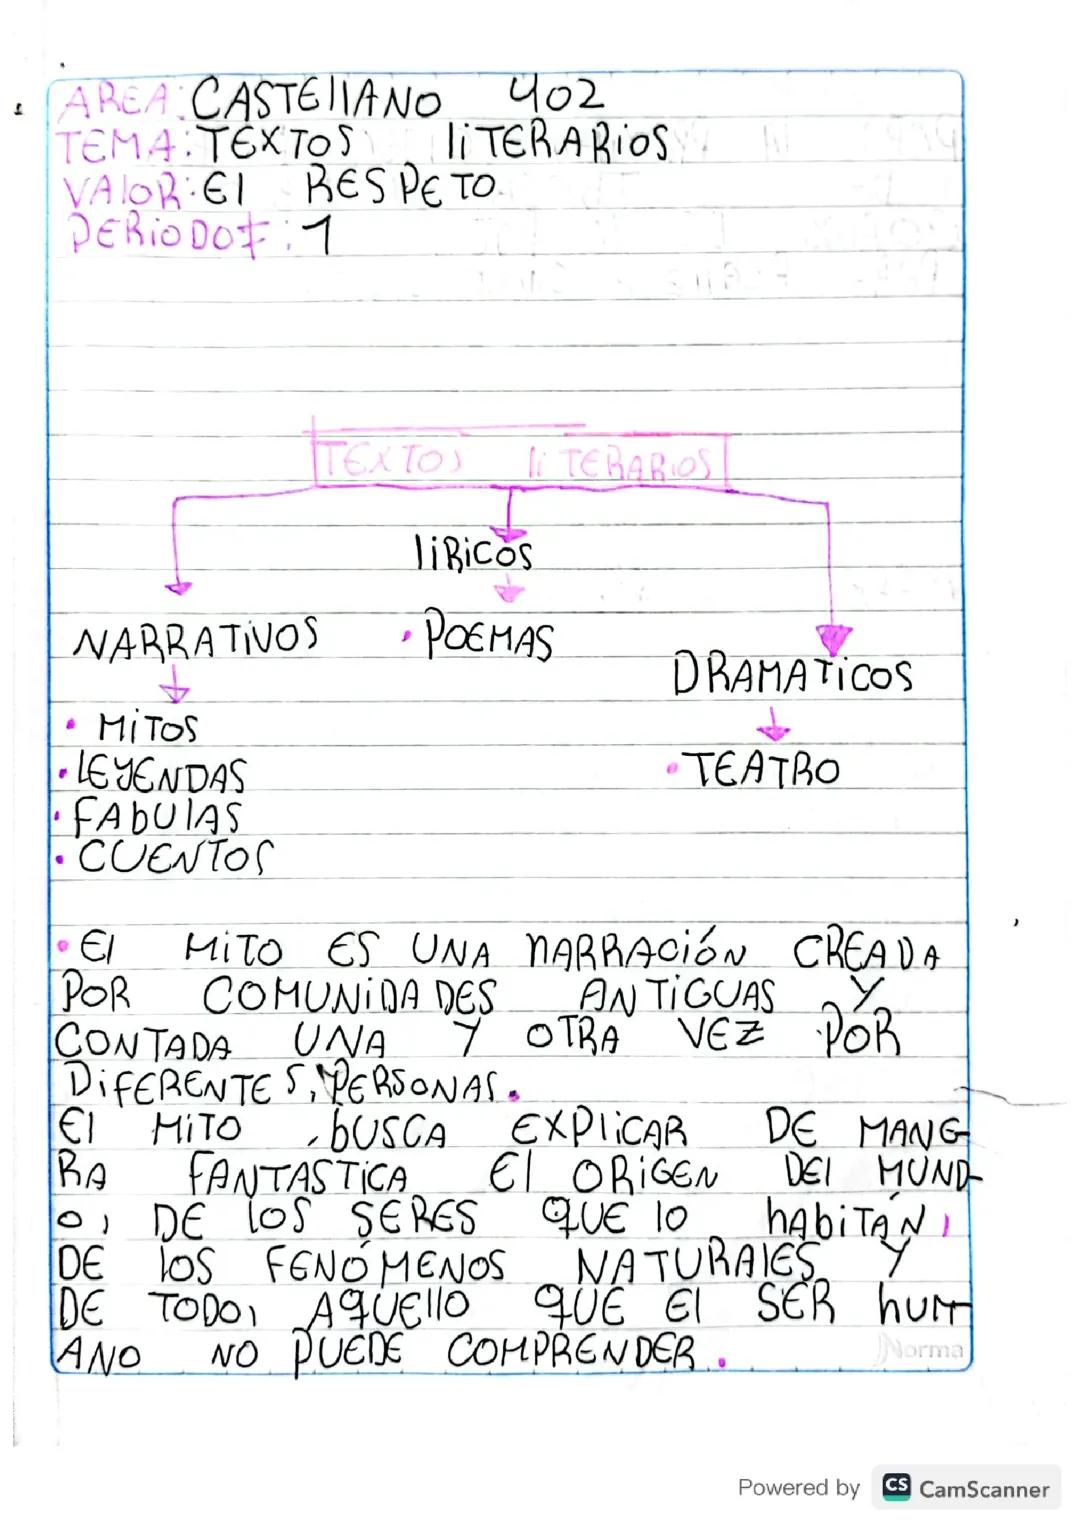 AREA: CASTEllANO 402
TEMA: TEXTOS liTERARiOS
VAlOR: El RESPETO.
PERiODO#: 1
TEXTOS liTERARiOS
liRiCOS
NARRATiVOS
• POEMAS
DRAMATiCOS
• MiTOS
• TEATRO
• LEYENDAS
• FAbUlAS
• CUENTOS
• El MiTO ES UNA NARRACiÓN CREADA
POR COMUNiDADES ANTiGUAS Y
CONTADA UNA Y OTRA VEZ POR
DiFERENTES, PERSONAS.
El MiTO, bUSCA EXPliCAR DE MANE-
RA FANTASTiCA El ORiGEN DEl MUND-
O, DE lOS SERES QUE lO hAbiTÁN,
DE lOS FENÓMENOS NATURAlES Y
DE TODO, AQUEllO QUE El SER hUM-
ANO NO PUEDE COMPRENDER.
Norma
Powered by CS CamScanner